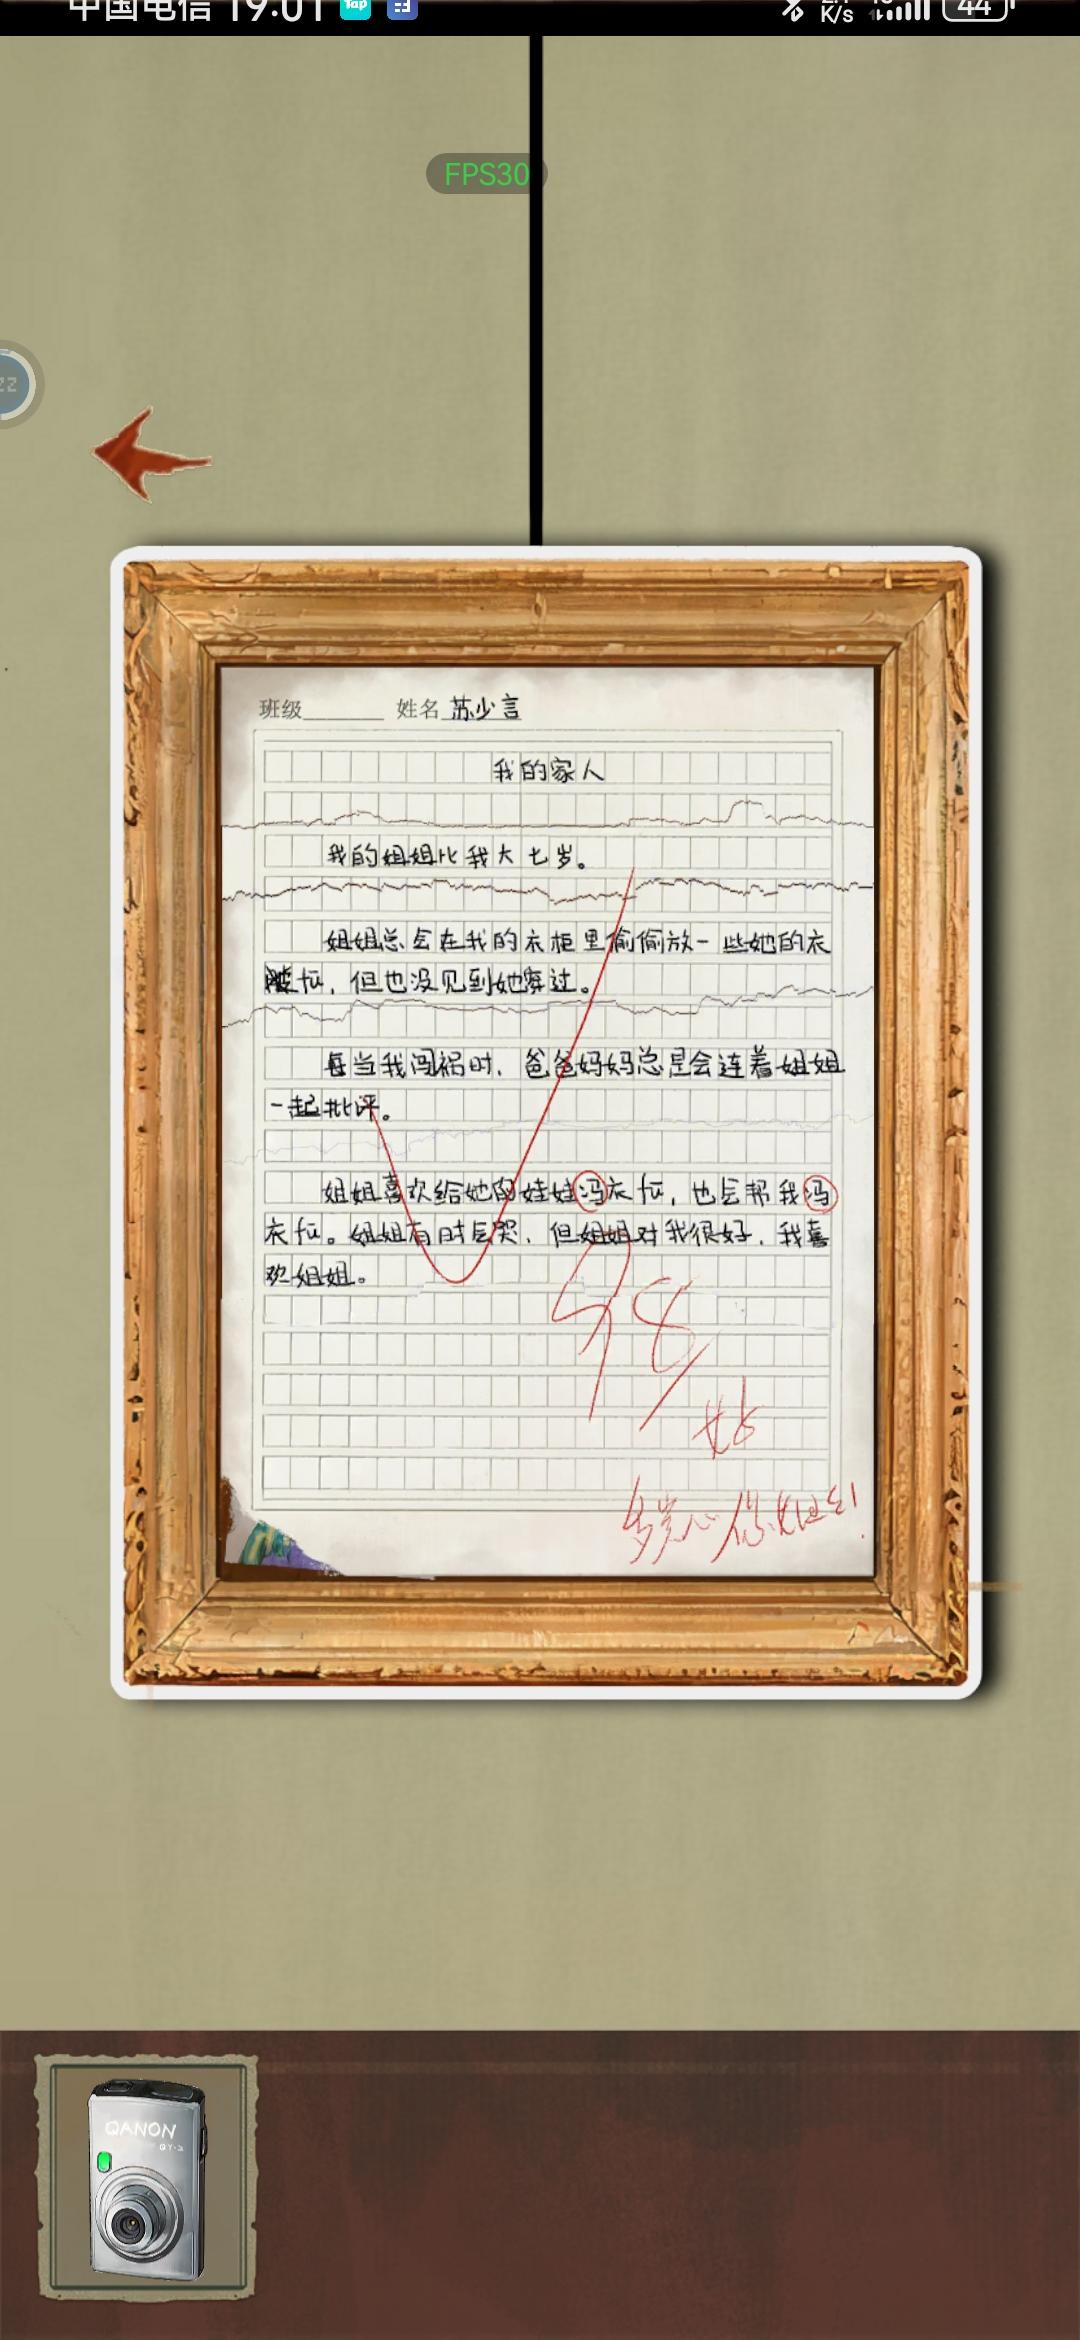 中国电信 19:01
K/s
44
FPS30
班级 姓名 苏少言
我的家人
我的姐姐比我大七岁。
姐姐总会在我的衣柜里偷偷放一些她的衣
服，但也没见到她穿过。
每当我闯祸时，爸爸妈妈总是会连着姐姐
一起批评。
姐姐喜欢给她的娃娃冯衣服，也会帮我冯
衣服。姐姐有时会哭，但姐姐对我很好，我喜
欢姐姐。
98
好
QANON